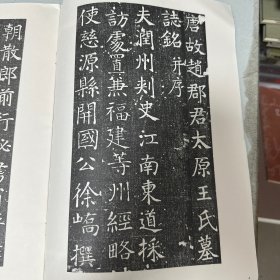 唐故趙郡君太原王氏墓
誌銘并序
夫潤州刺史江南東道採
訪處置兼福建等州經略
使慈源縣開國公徐嶠撰
朝散郎前行必書